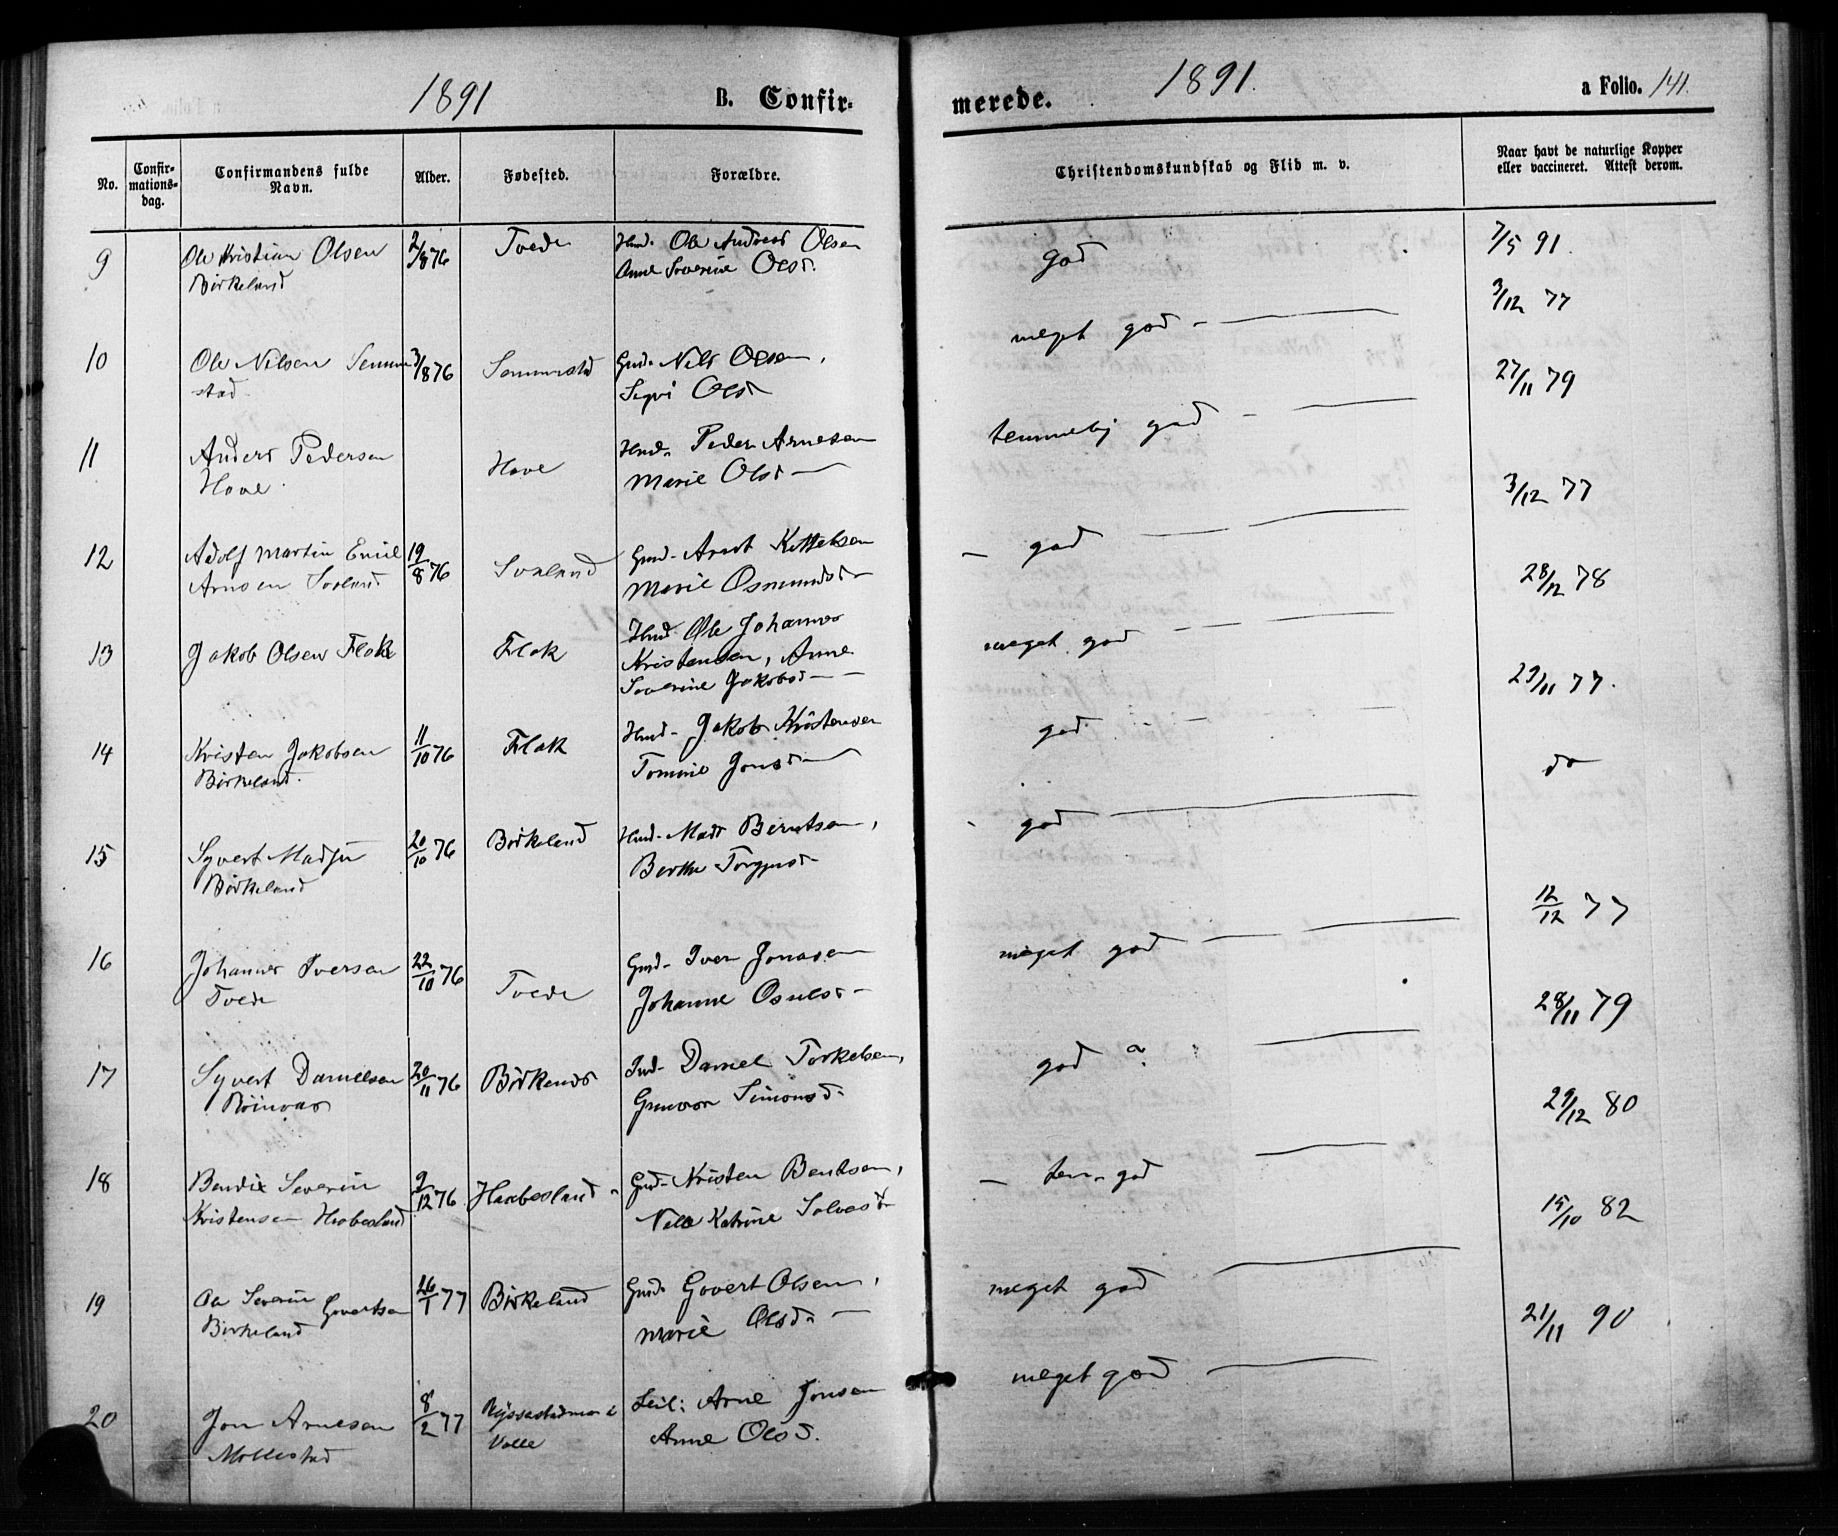 1891
B. Confir=
merede.
1891.
a Folio. 141.
No.
Confir-
mations-
dag.
Confirmandens fulde
Navn.
Alder.
Fødested.
Forældre.
Christendomskundskab og Flid m. v.
Naar havt de naturlige Kopper
eller vaccineret. Attest derom.
9 Ole Kristian Olsen 2/8 76 Tvede Ole Andreas Olsen god 7/5 91.
Birkeland Anne Severine Olsd.
3/12 77
meget god
10 Ole Nilsen Semme 3/8 76 Semmestad Gmd. Nils Olsen,
stad Sigri Olsd
27/11 79
temmelig god
11 Anders Pedersen Hove Peder Arnesen
Hove Marie Olsd
3/12 77
god
12 Adolf Martin Emil 19/8 76 Svaland Gmd. Arnt Kittelsen
Arnsen Svaland Marie Osmundsd
28/12 78
meget god
13 Jakob Olsen Flak Flak Ole Johannes
Kristensen, Anne
Severine Jakobsd
29/11 77.
god
14 Kristen Jakobsen 11/10 76 Flak Jakob Kristensen
Birkeland. Tomine Jonsd
do
god
15 Syvert Madsen 20/10 76 Birkeland Mads Berntsen,
Birkeland Berthe Torgjusd
12/12 77
meget god
16 Johannes Iversen 22/10 76 Tvede Gmd. Iver Jonasen
Tvede Johanne
28/11 79
god
17 Syvert Danielsen 20/11 76 Daniel Torkelsen,
Gunvor Simonsd.
29/12 80
tem. god
18 Bendix Severin 9/12 76 Haabesland Gmd. Kristen Bentsen,
Kristensen Haabesland Katrine
15/10 82
meget god
19 Severin Govertsen 26/1 77 Birkeland Gmd. Govert Olsen,
Birkeland Marie Olsd.
21/11 90
meget god
20 Jon Arnesen 8/2 77 Arne Jonsen
Mollestad Valle Anne Olsd.